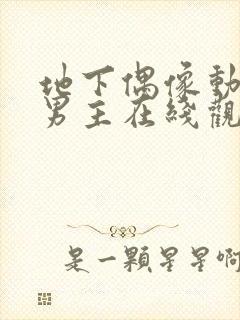 地下偶像動
男主在綫觀
是一顆星星啊